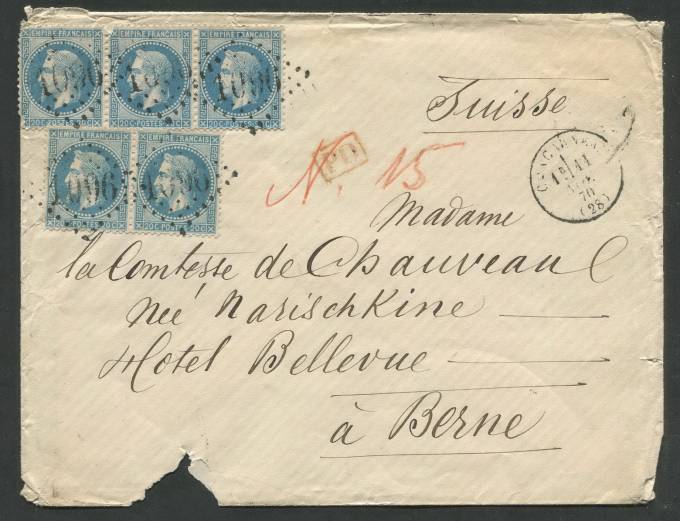 EMPIRE FRANÇAIS EMPIRE FRANÇAIS EMPIRE FRANÇAIS
20 C POSTES 20 C 20 C POSTES 20 C 20 C POSTES 20 C
1096 1096 1096
EMPIRE FRANÇAIS EMPIRE FRANÇAIS
20 C POSTES 20 C 20 C POSTES 20 C
1096 1096
Suisse
N. 15
PD
70
(28)
Madame
la Comtesse de Chauveau
née Narischkine
Hotel Bellevue
à Berne